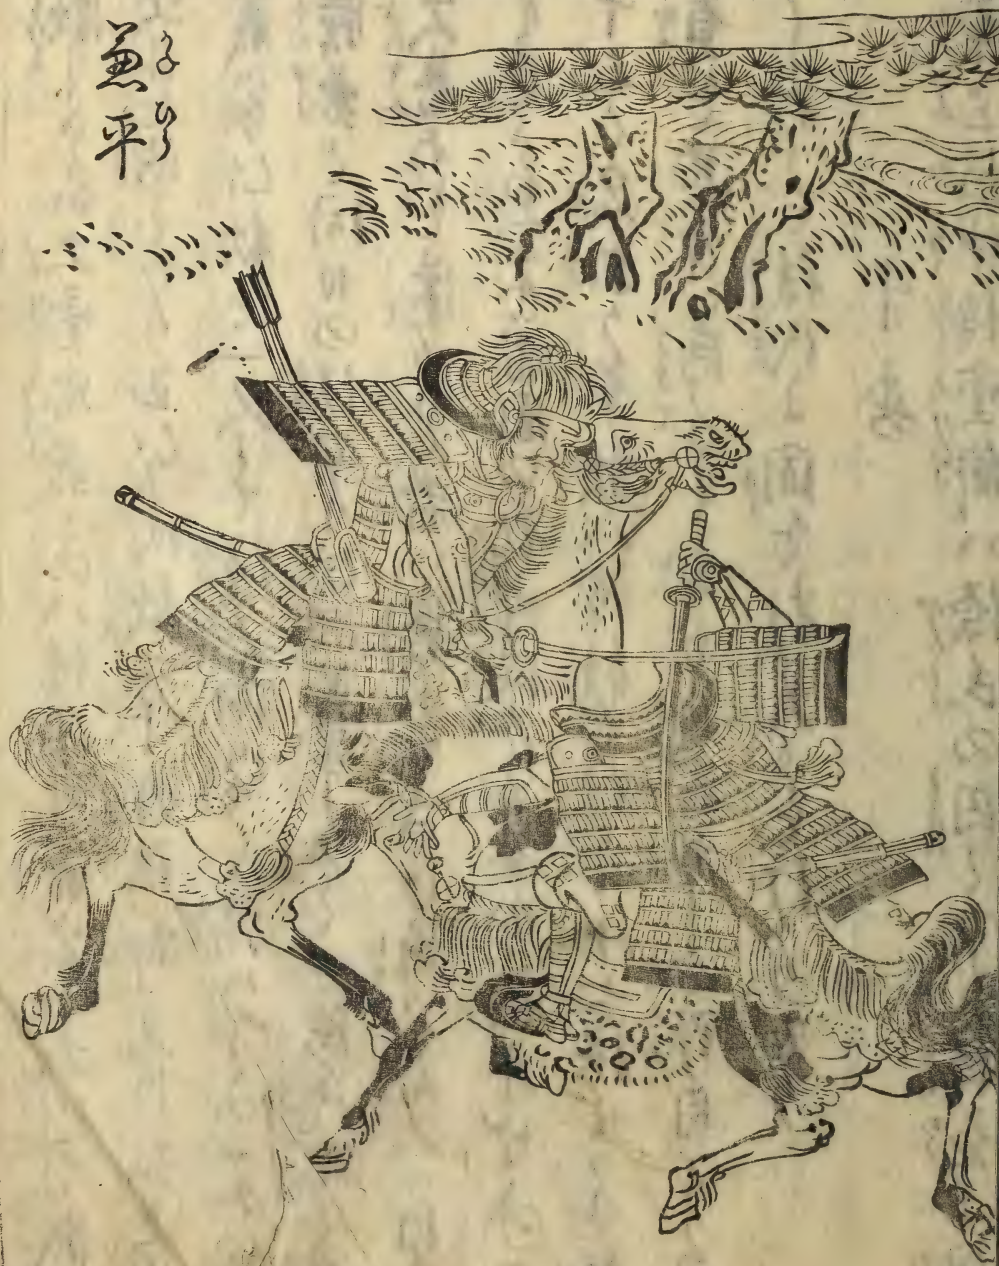 兼平
かねひら